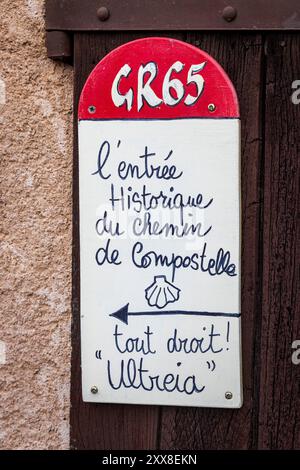 GR65
l'entrée
Historique
du chemin
de Compostelle
tout droit!
"Ultreia"